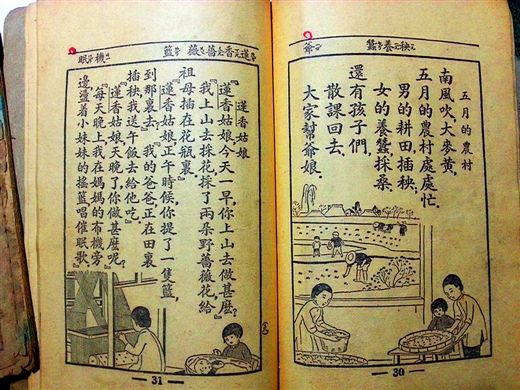 秧 養 蠶 爺
五月的農村
南風吹,大麥黃,
五月的農村處處忙.
男的耕田插秧;
女的養蠶採桑.
還有孩子們,
散課回去,
大家幫爺娘.
30
蓮 香 薔 薇 籃 機 眠
蓮香姑娘
『蓮香姑娘,今天一早,你上山去做甚麼?』
『我上山去採花,採了兩朵野薔薇花,給
祖母插在花瓶裏.』
『蓮香姑娘,正午時候,你提了一隻籃,
到那裏去?』『我的爸爸正在田裏
插秧,我送午飯去給他吃.』
『蓮香姑娘,天晚了,你做甚麼呢?』
『每天晚上,我在媽媽的布機旁
邊,盪着小妹妹的搖籃,唱催眠歌.』
31